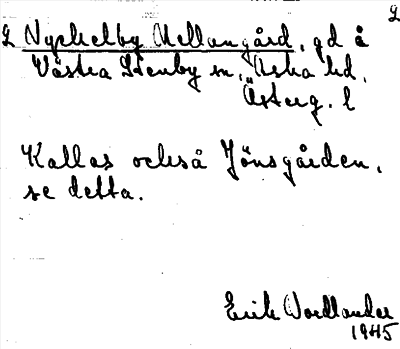 L
L Nyckelby Mellangård, gd i
Västra Stenby sn, Aska hd,
Österg. l
Kallas också Jönsgården,
se detta.
Erik Nordlander
1945